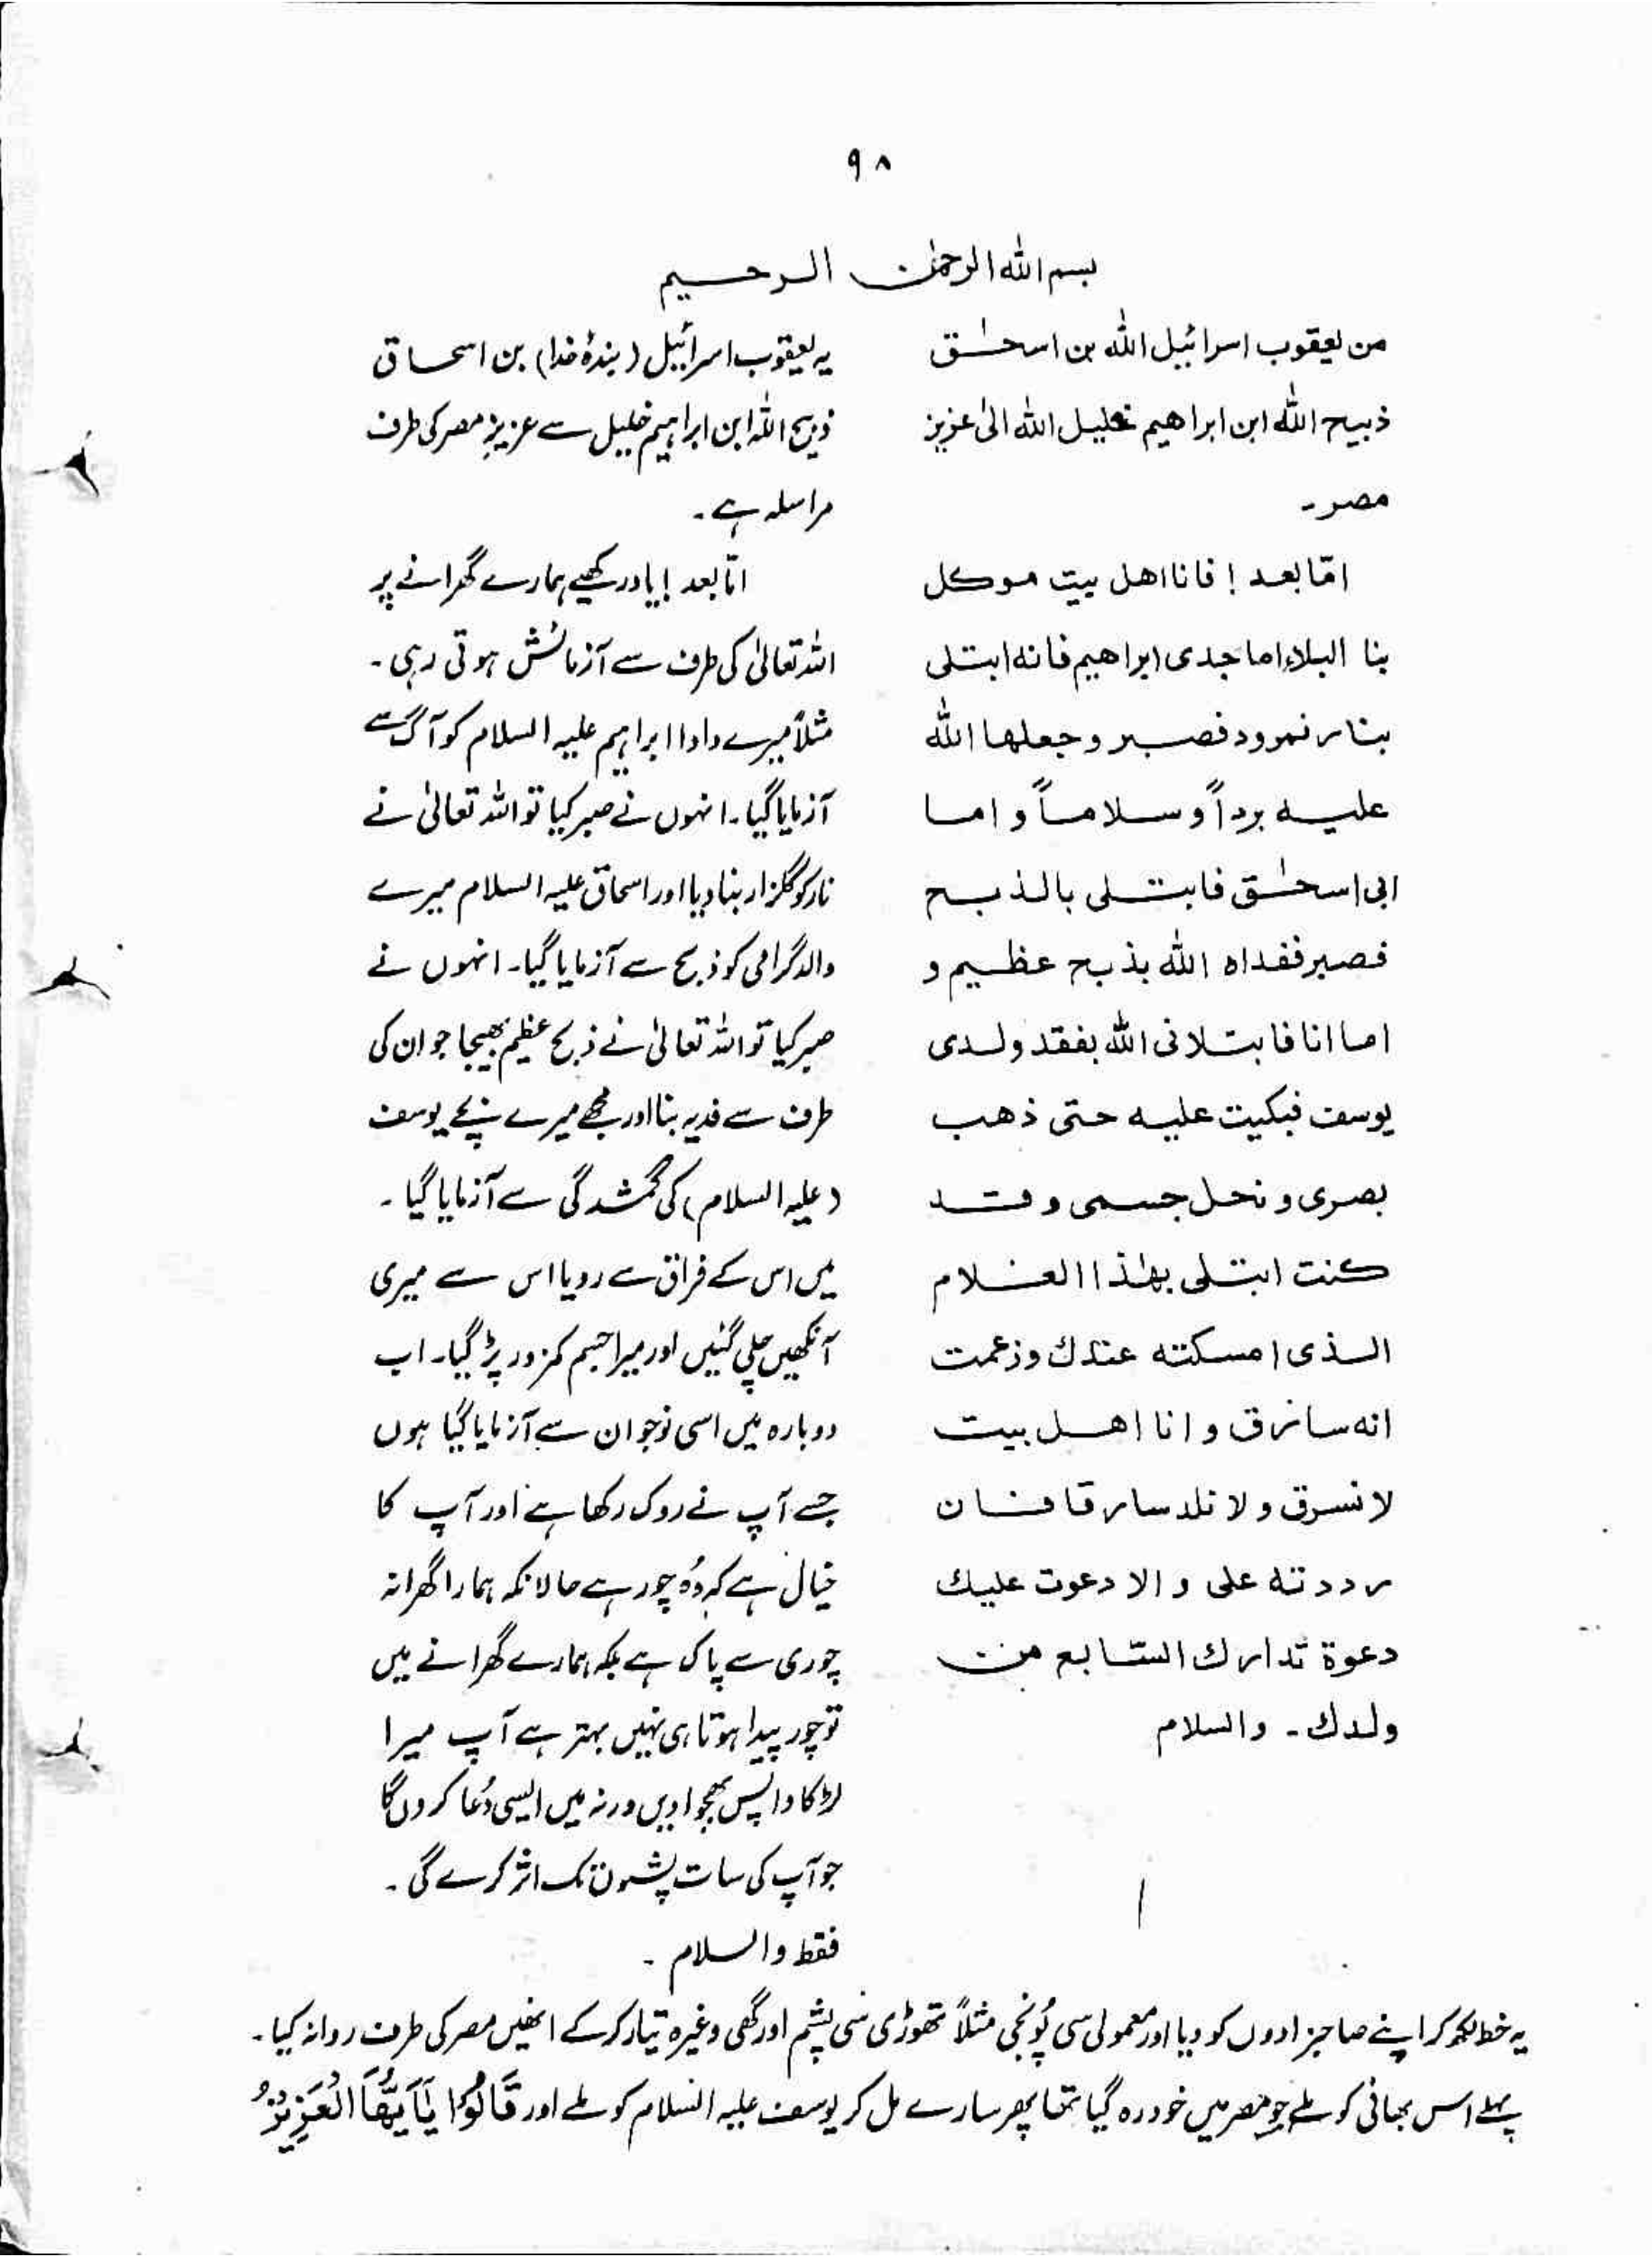 ۹۸
بسم الله الرحمٰن الرحیم
من یعقوب اسرائیل الله بن اسحٰق
ذبیح الله ابن ابراھیم خلیل الله الیٰ عزیز
مصر۔
امّا بعد! فانا اھل بیت موکل
بنا البلاء اما جدی ابراھیم فانه ابتلی
بنار نمرود فصبر وجعلھا الله
علیه برداً وسلاماً و اما
ابی اسحٰق فابتلی بالذبح
فصبر ففداہ الله بذبح عظیم و
اما انا فابتلانی الله بفقد ولدی
یوسف فبکیت علیه حتی ذھب
بصری و نحل جسمی وقد
کنت ابتلی بھٰذا الغلام
الذی امسکته عندك وزعمت
انه سارق و انا اھل بیت
لا نسرق ولا نلد سارقا فان
رددته علی و الا دعوت علیك
دعوة تدارك السّابع من
ولدك۔ والسلام
یہ یعقوب اسرائیل (بندۂ خدا) بن اسحاق
ذبیح اللہ ابن ابراہیم خلیل سے عزیزِ مصر کی طرف
مراسلہ ہے۔
امّا بعد! یاد رکھیے ہمارے گھرانے پر
اللہ تعالیٰ کی طرف سے آزمائش ہوتی رہی۔
مثلاً میرے دادا ابراہیم علیہ السلام کو آگ سے
آزمایا گیا۔ انہوں نے صبر کیا تو اللہ تعالیٰ نے
نار کو گلزار بنا دیا اور اسحاق علیہ السلام میرے
والد گرامی کو ذبح سے آزمایا گیا۔ انہوں نے
صبر کیا تو اللہ تعالیٰ نے ذبح عظیم بھیجا جو ان کی
طرف سے فدیہ بنا اور مجھے میرے بچے یوسف
(علیہ السلام) کی گمشدگی سے آزمایا گیا۔
میں اس کے فراق سے رویا اس سے میری
آنکھیں چلی گئیں اور میرا جسم کمزور پڑ گیا۔ اب
دوبارہ میں اسی نوجوان سے آزمایا گیا ہوں
جسے آپ نے روک رکھا ہے اور آپ کا
خیال ہے کہ وُہ چور ہے حالانکہ ہمارا گھرانہ
چوری سے پاک ہے بلکہ ہمارے گھرانے میں
تو چور پیدا ہوتا ہی نہیں بہتر ہے آپ میرا
لڑکا واپس بھجوا دیں ورنہ میں ایسی دُعا کروں گا
جو آپ کی سات پشتوں تک اثر کرے گی۔
فقط والسلام۔
یہ خط لکھ کر اپنے صاحبزادوں کو دیا اور معمولی سی پُونجی مثلاً تھوڑی سی پشم اور گھی وغیرہ تیار کر کے انھیں مصر کی طرف روانہ کیا۔
پہلے اس بھائی کو ملے جو مصر میں خود رہ گیا تھا پھر سارے مل کر یوسف علیہ السلام کو ملے اور قَالُوْا یٰٓاَیُّھَا الْعَزِیْزُ